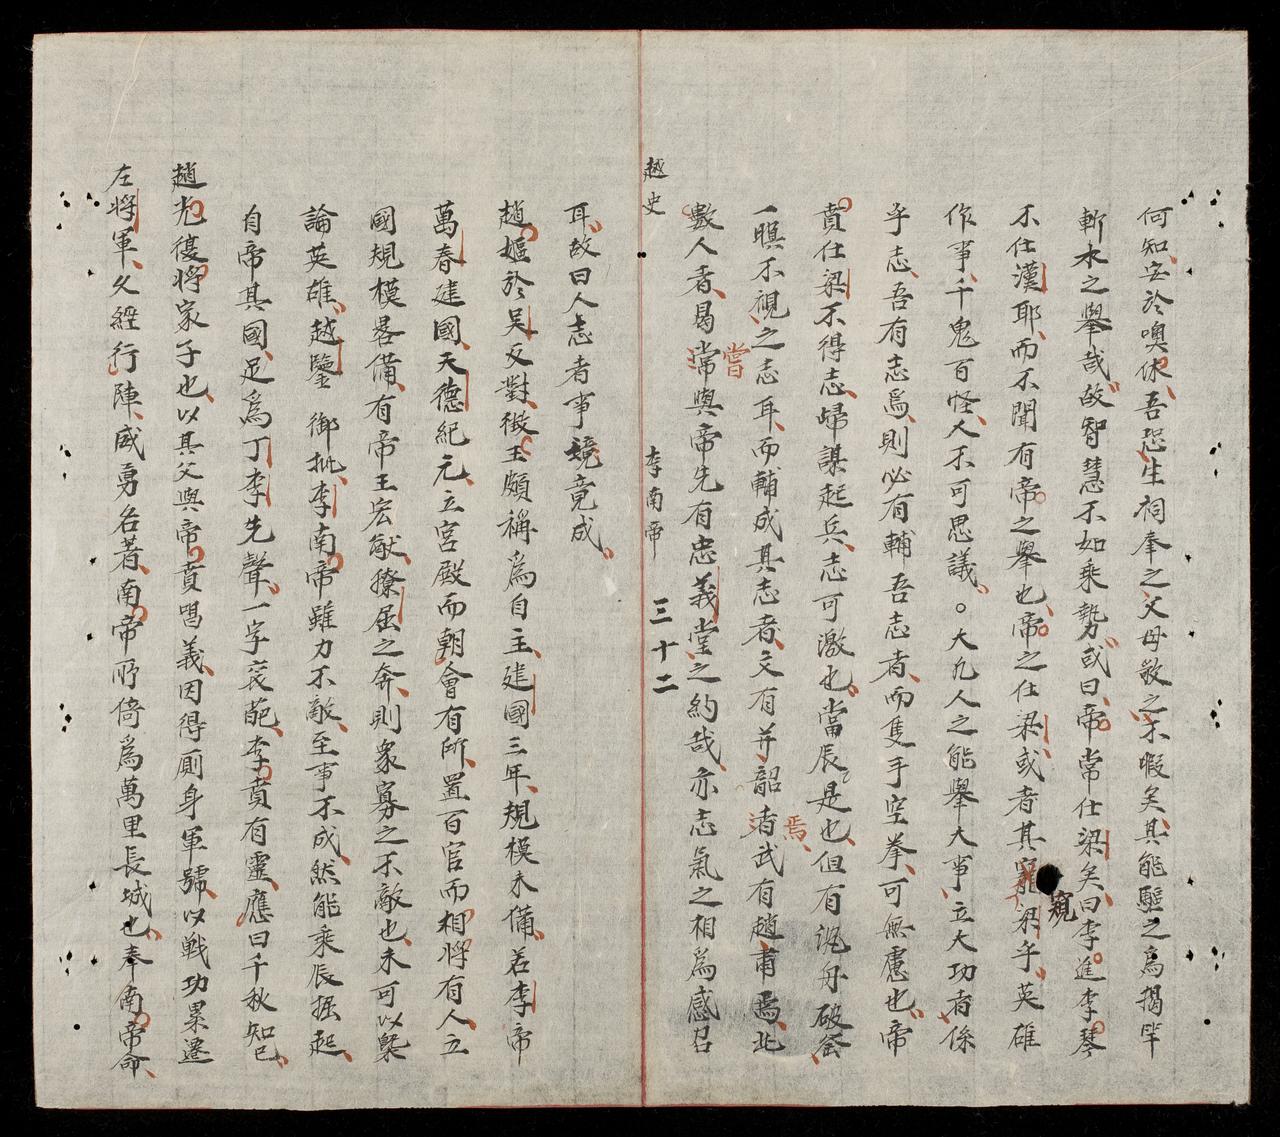 何知安於噢休吾恐生祠奉之父母敬之不暇矣其能驅之為揭竿
斬木之舉哉故智慧不如乘勢或曰帝常仕梁矣曰李進李琴
不仕漢耶而不聞有帝之舉也帝之仕梁或者其寵梁乎英雄
窺
作事千鬼百怪人不可思議○大凡人之能舉大事立大功者係
乎志吾有志焉則必有輔吾志者而隻手空拳可無慮也帝
賁仕梁不得志歸謀起兵志可激也當辰是也但有沉舟破釜
一瞑不視之志耳而輔成其志者文有并韶者武有趙肅焉北
焉
數人者曷常與帝先有忠義堂之約哉亦志氣之相為感召
嘗
越史
李南帝
三十二
耳故曰人志者事竟成
趙嫗於吳反對徵王頗稱為自主建國三年規模未備若李帝
萬春建國天德紀元立宮殿而朝會有所置百官而相將有人立
國規模畧備有帝王宏猷獠屈之奔則衆寡之不敵也未可以槩
論英雄越鑒 御批李南帝雖力不敵至事不成然能乘辰掘起
自帝其國足為丁李先聲一字衮葩李賁有靈應曰千秋知已
趙光復將家子也以其父與帝賁唱義因得厠身軍號以戰功累遷
左將軍久經行陣威勇名著南帝所倚為萬里長城也奉南帝命